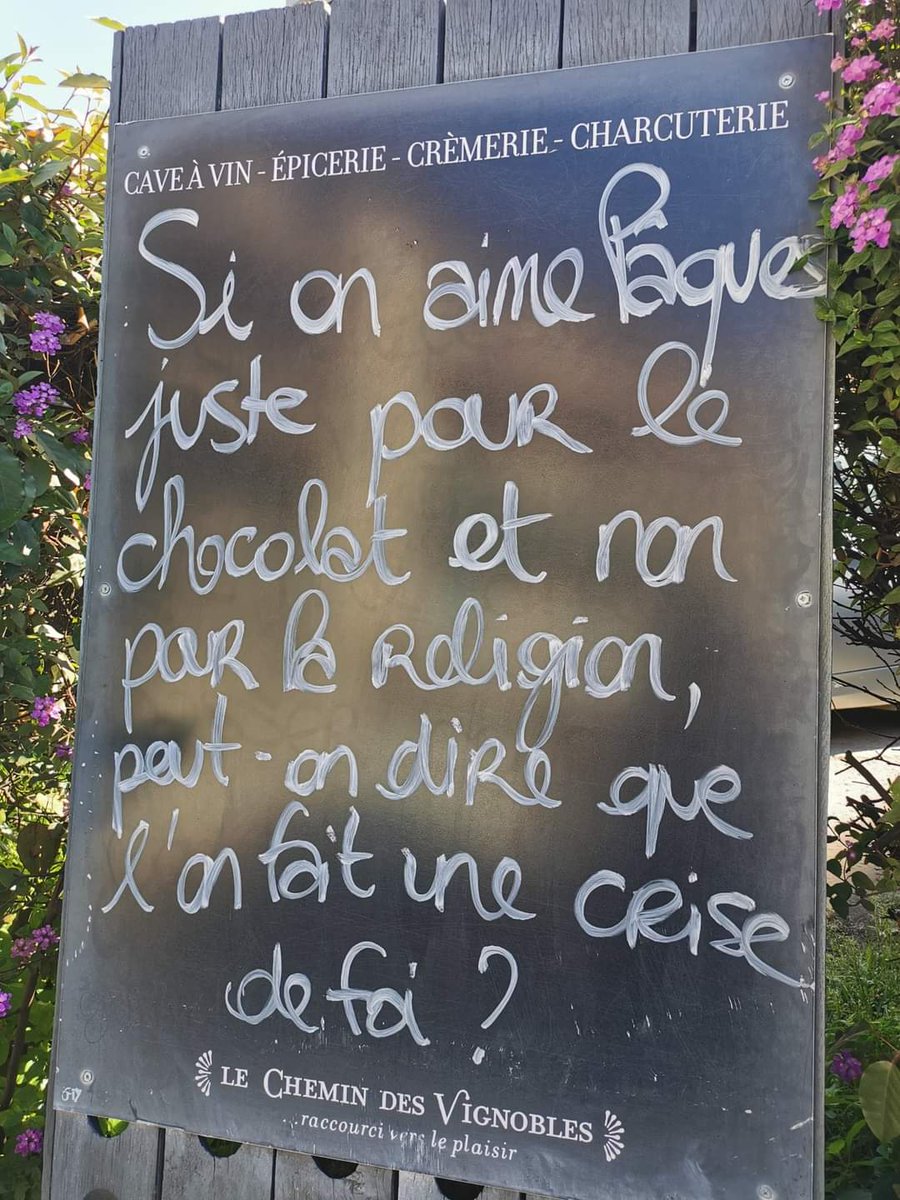 CAVE À VIN - ÉPICERIE - CRÈMERIE - CHARCUTERIE
Si on aime Paques
juste pour le
chocolat et non
pour la religion,
peut-on dire que
l'on fait une crise
de foi ?
LE CHEMIN DES VIGNOBLES
...raccourci vers le plaisir